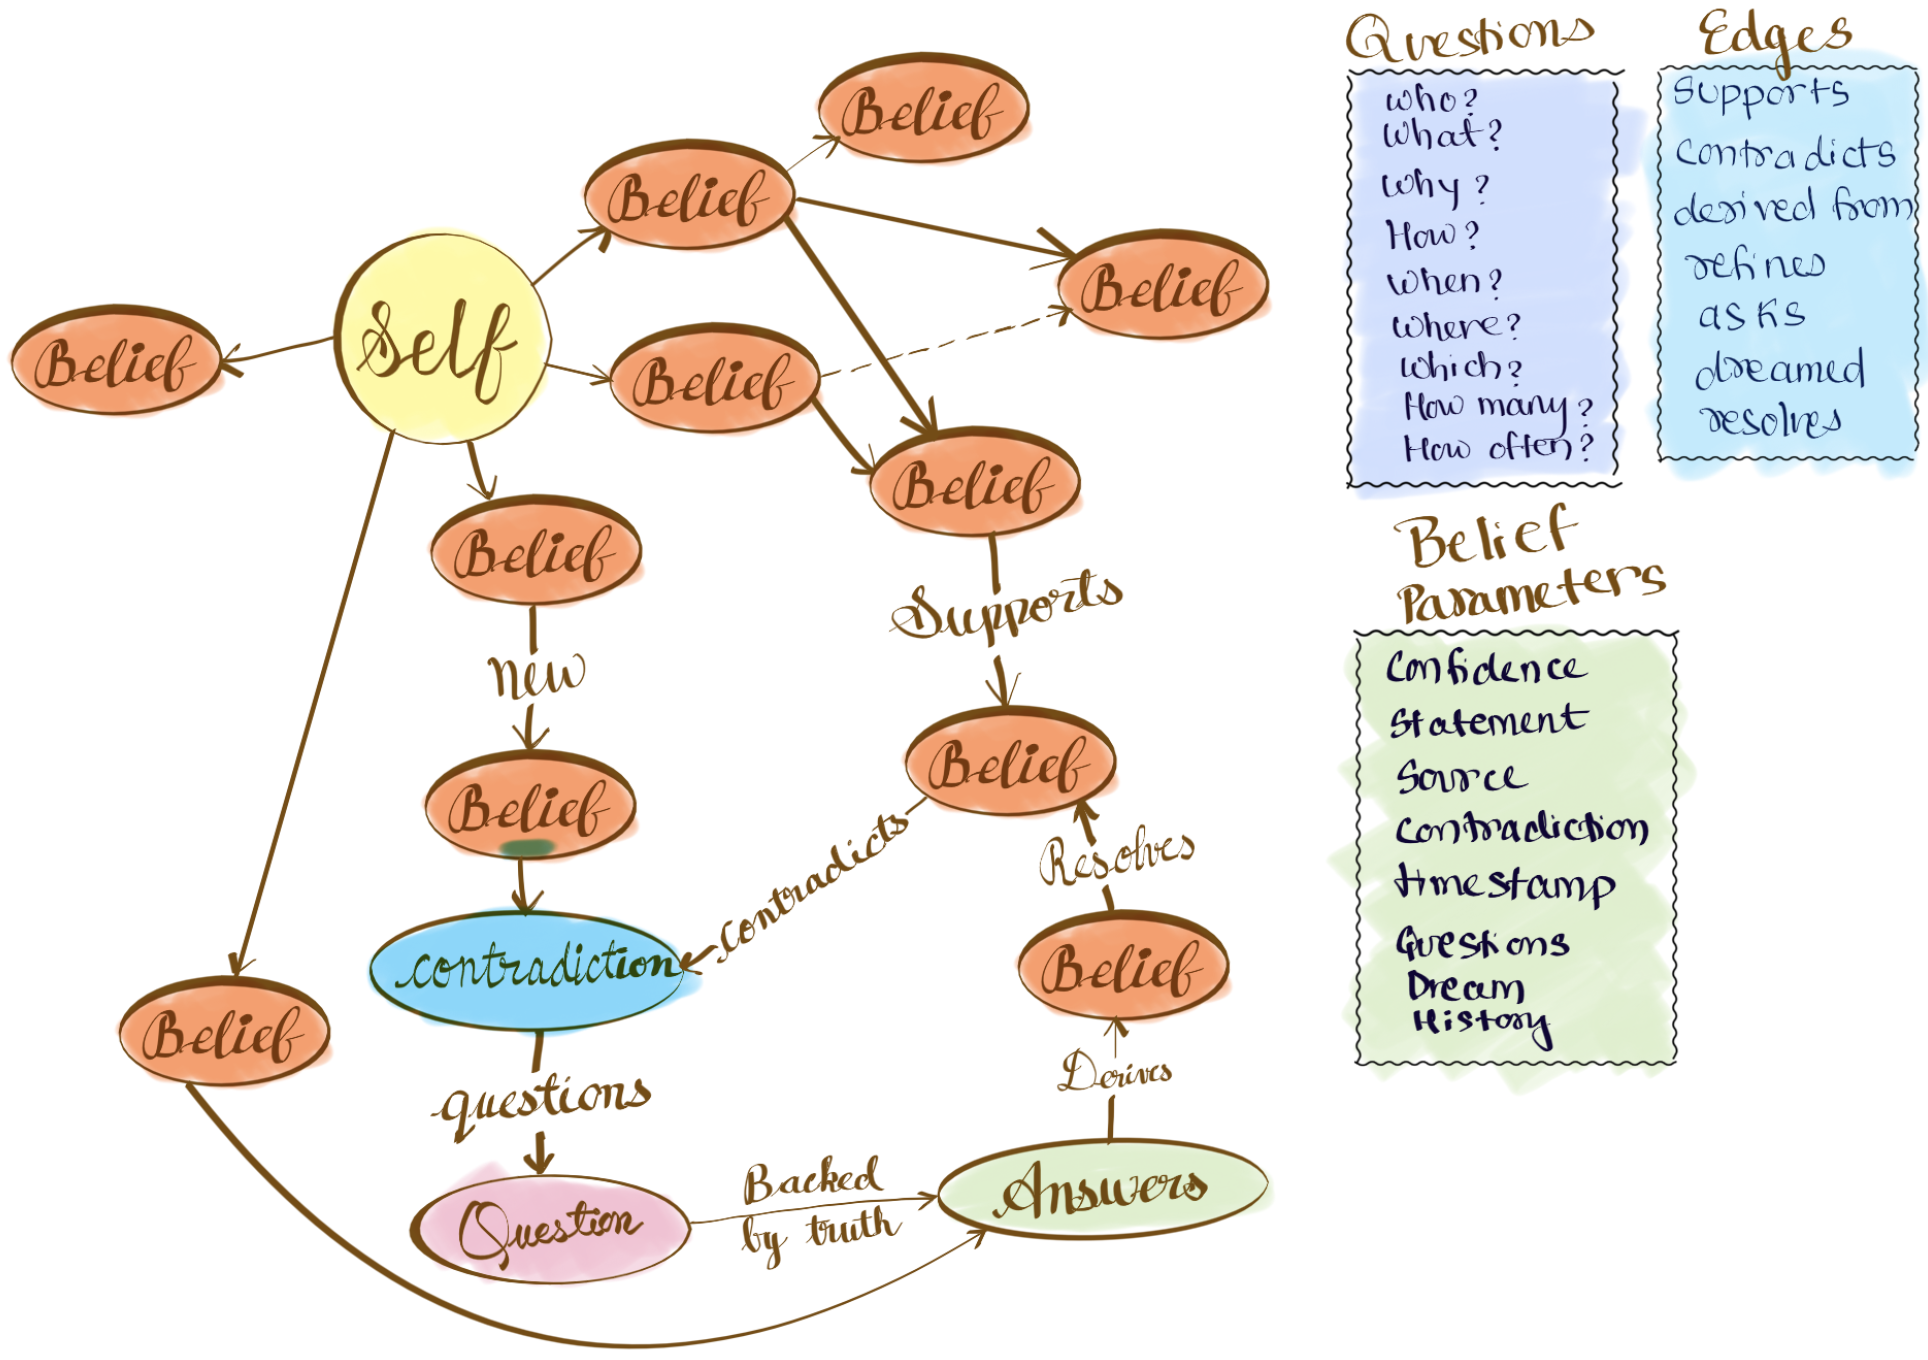 Belief
Belief
Belief
Self
Belief
Belief
Belief
Belief
Belief
New
Supports
Belief
Belief
contradicts
Resolves
contradiction
Belief
Belief
questions
Derives
Question
Backed
by truth
Answers
Questions
Who?
What?
Why?
How?
When?
Where?
Which?
How many?
How often?
Edges
Supports
Contradicts
derived from
refines
asks
dreamed
resolves
Belief
Parameters
Confidence
Statement
Source
Contradiction
timestamp
Questions
Dream
History